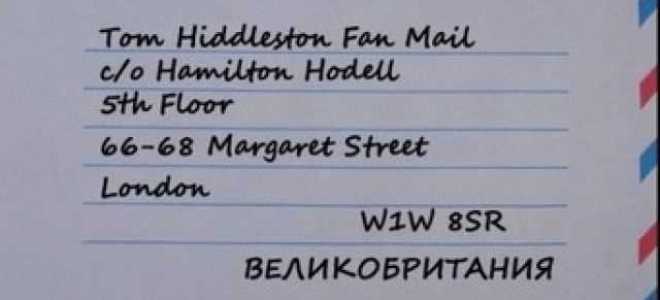 Tom Hiddleston Fan Mail
c/o Hamilton Hodell
5th Floor
66-68 Margaret Street
London
W1W 8SR
ВЕЛИКОБРИТАНИЯ